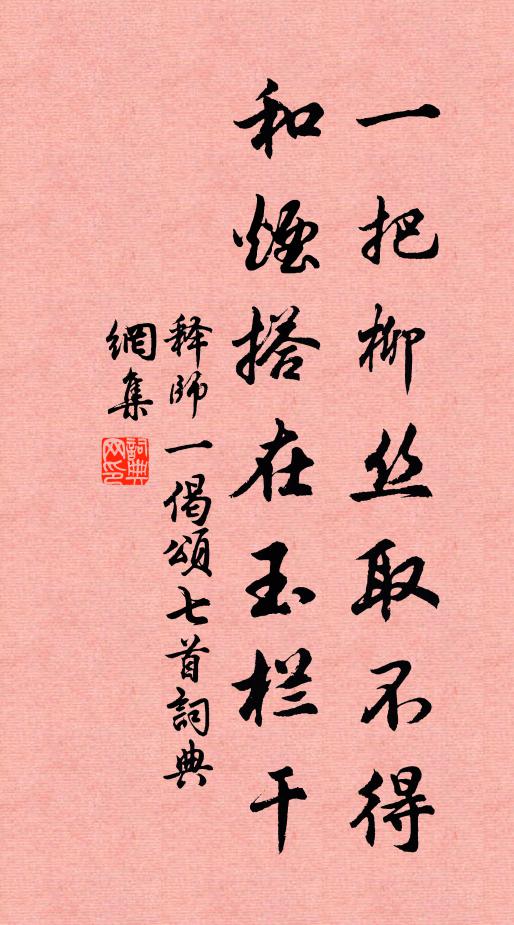 一把柳丝取不得
和烟搭在玉栏干
释师一偈頌七首詞典
網集
詞典
网印